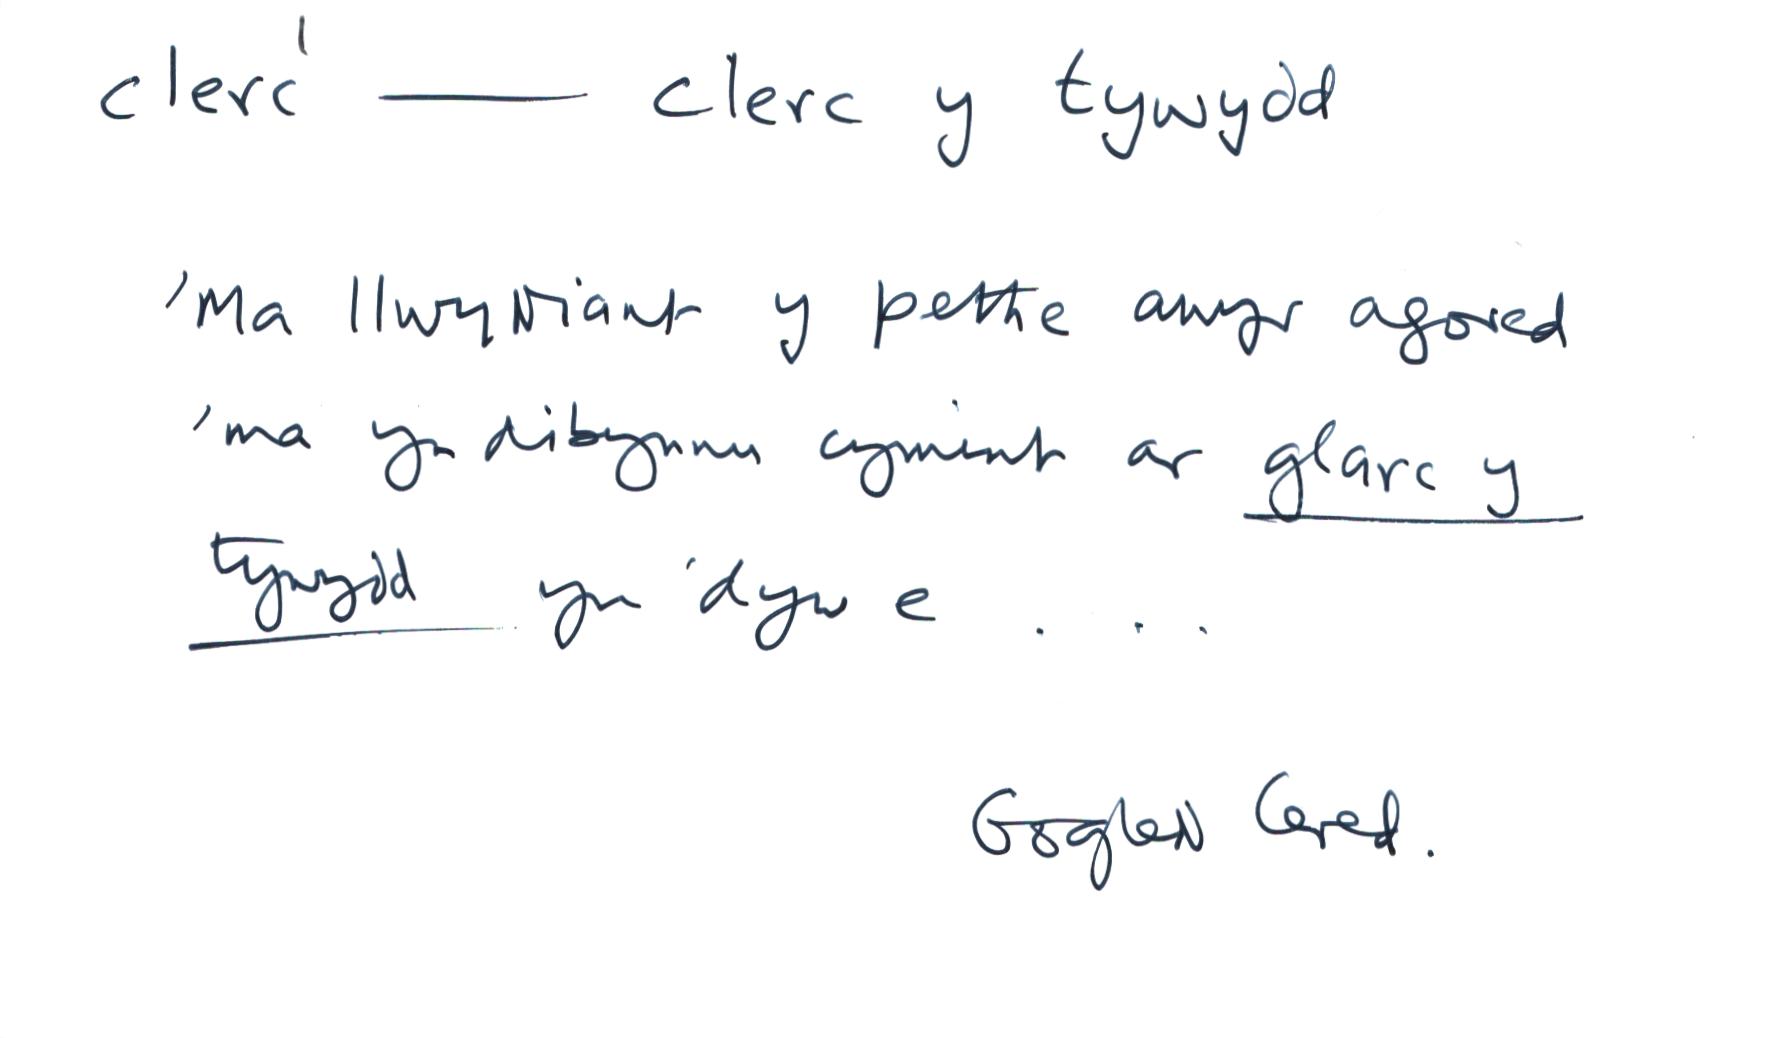 clerc' —— clerc y tywydd
'Ma llwyddiant y pethe awyr agored
'ma yn dibynnu cymint ar glarc y
tywydd yn 'dyw e . . .
Gogledd Cered.